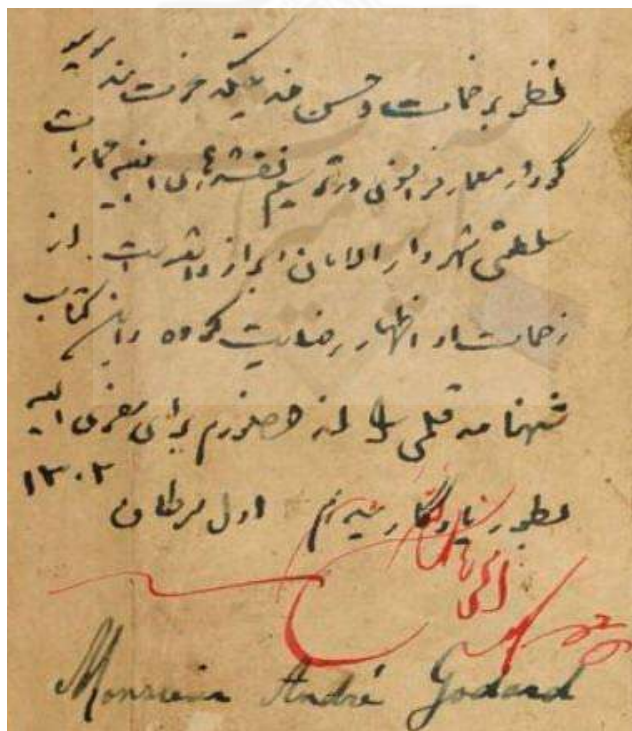 نظر بر خدمات و حسن خدمتیکه حضرت
گودار معمار فرانسوی در ترسیم نقشه های ابنیه عمارات
سلطنتی شهر دارالامان ابراز داشته است. از
زحمات او اظهار رضایت کرده و این کتاب
شهنامه قلمی را از حضورم برای معزی الیه
بطور یادگار میدهم اول سرطان ۱۳۰۲
Monsieur André Godard